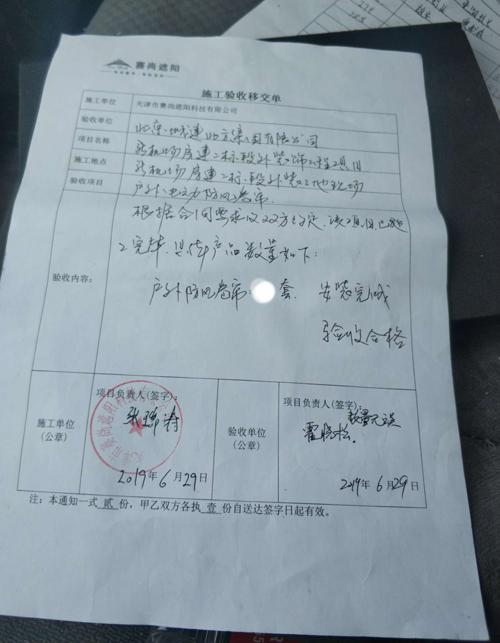 赛尚遮阳
施工验收移交单
施工单位 天津市赛尚遮阳科技有限公司
验收单位 北京城建北方集团有限公司
项目名称 新机场房建二标段外装饰工程项目
施工地点 新机场房建二标段外装工地现场
验收项目 户外电动防风卷帘
验收内容:
根据合同要求及双方约定,该项目已施
工完毕,具体产品数量如下:
户外防风卷帘 套, 安装完成
验收合格
施工单位
(公章)
项目负责人(签字):
2019年6月29日
验收单位
(公章)
项目负责人(签字):
数量无误
霍晓松
2019年6月29日
注:本通知一式 贰 份,甲乙双方各执 壹 份自送达签字日起有效。